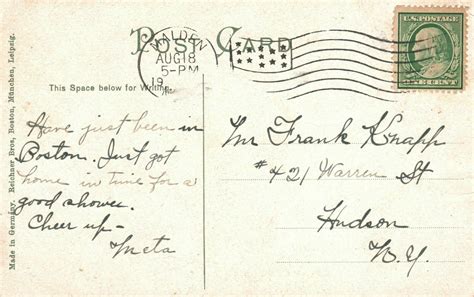 POST CARD
MALDEN
AUG 18
5-PM
19
U.S. POSTAGE
This Space below for Writing
Have just been in
Boston. Just got
home in time for a
good shower.
Cheer up-
Meta
Mr Frank Knapp
#421 Warren St
Hudson
N.Y.
Made in Germany. Reichner Bros, Boston, München, Leipzig.